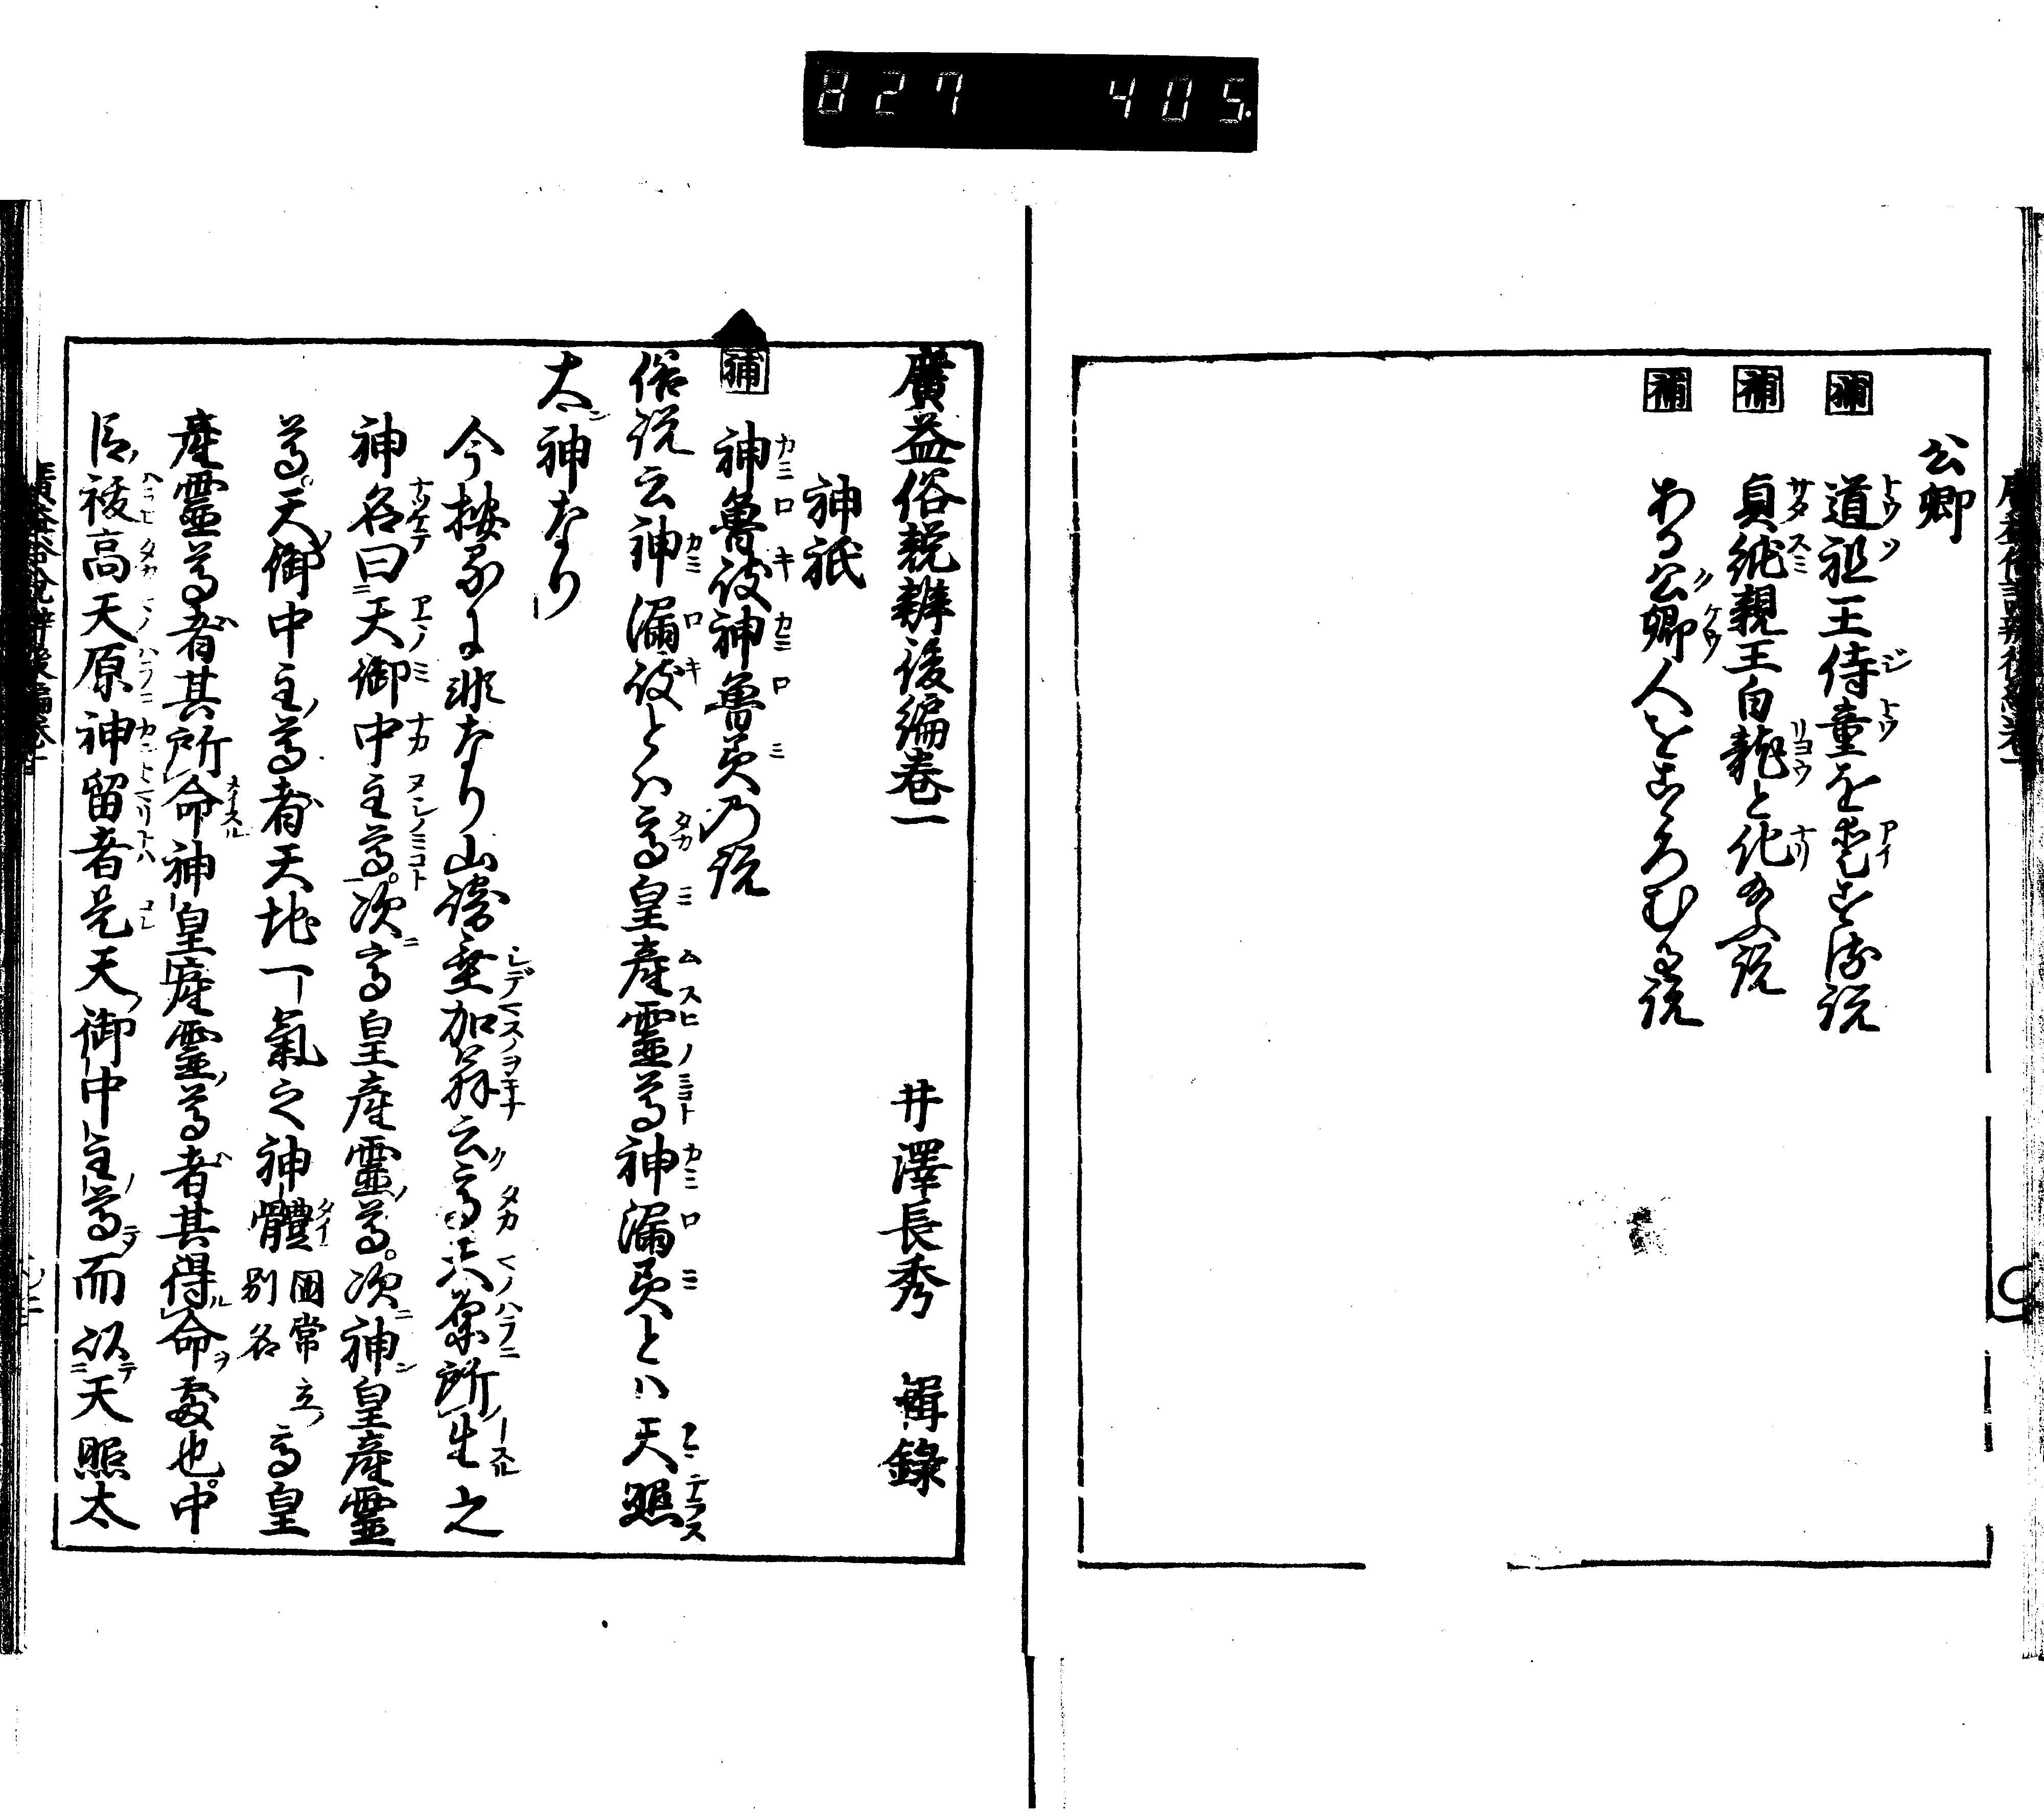 827 405.
公卿
補 道祖王侍童を愛する説
補 貞純親王白龍と化給ふ説
補 ある公卿人をこゝろむる説
廣益俗説辨後編巻一 井澤長秀 輯錄
神祇
補 神魯岐神魯美乃説
俗説云神漏岐とハ高皇産靈尊神漏美とハ天照
太神なり
今按るに非なり山崎垂加翁云高天原所生之
神名曰天御中主尊。次高皇産靈尊。次神皇産靈
尊。天御中主尊者天地一氣之神體 國常立別名 高皇
産靈尊者其所命神皇産靈尊者其得命處也。中
臣祓高天原神留者是天御中主尊而以天照太